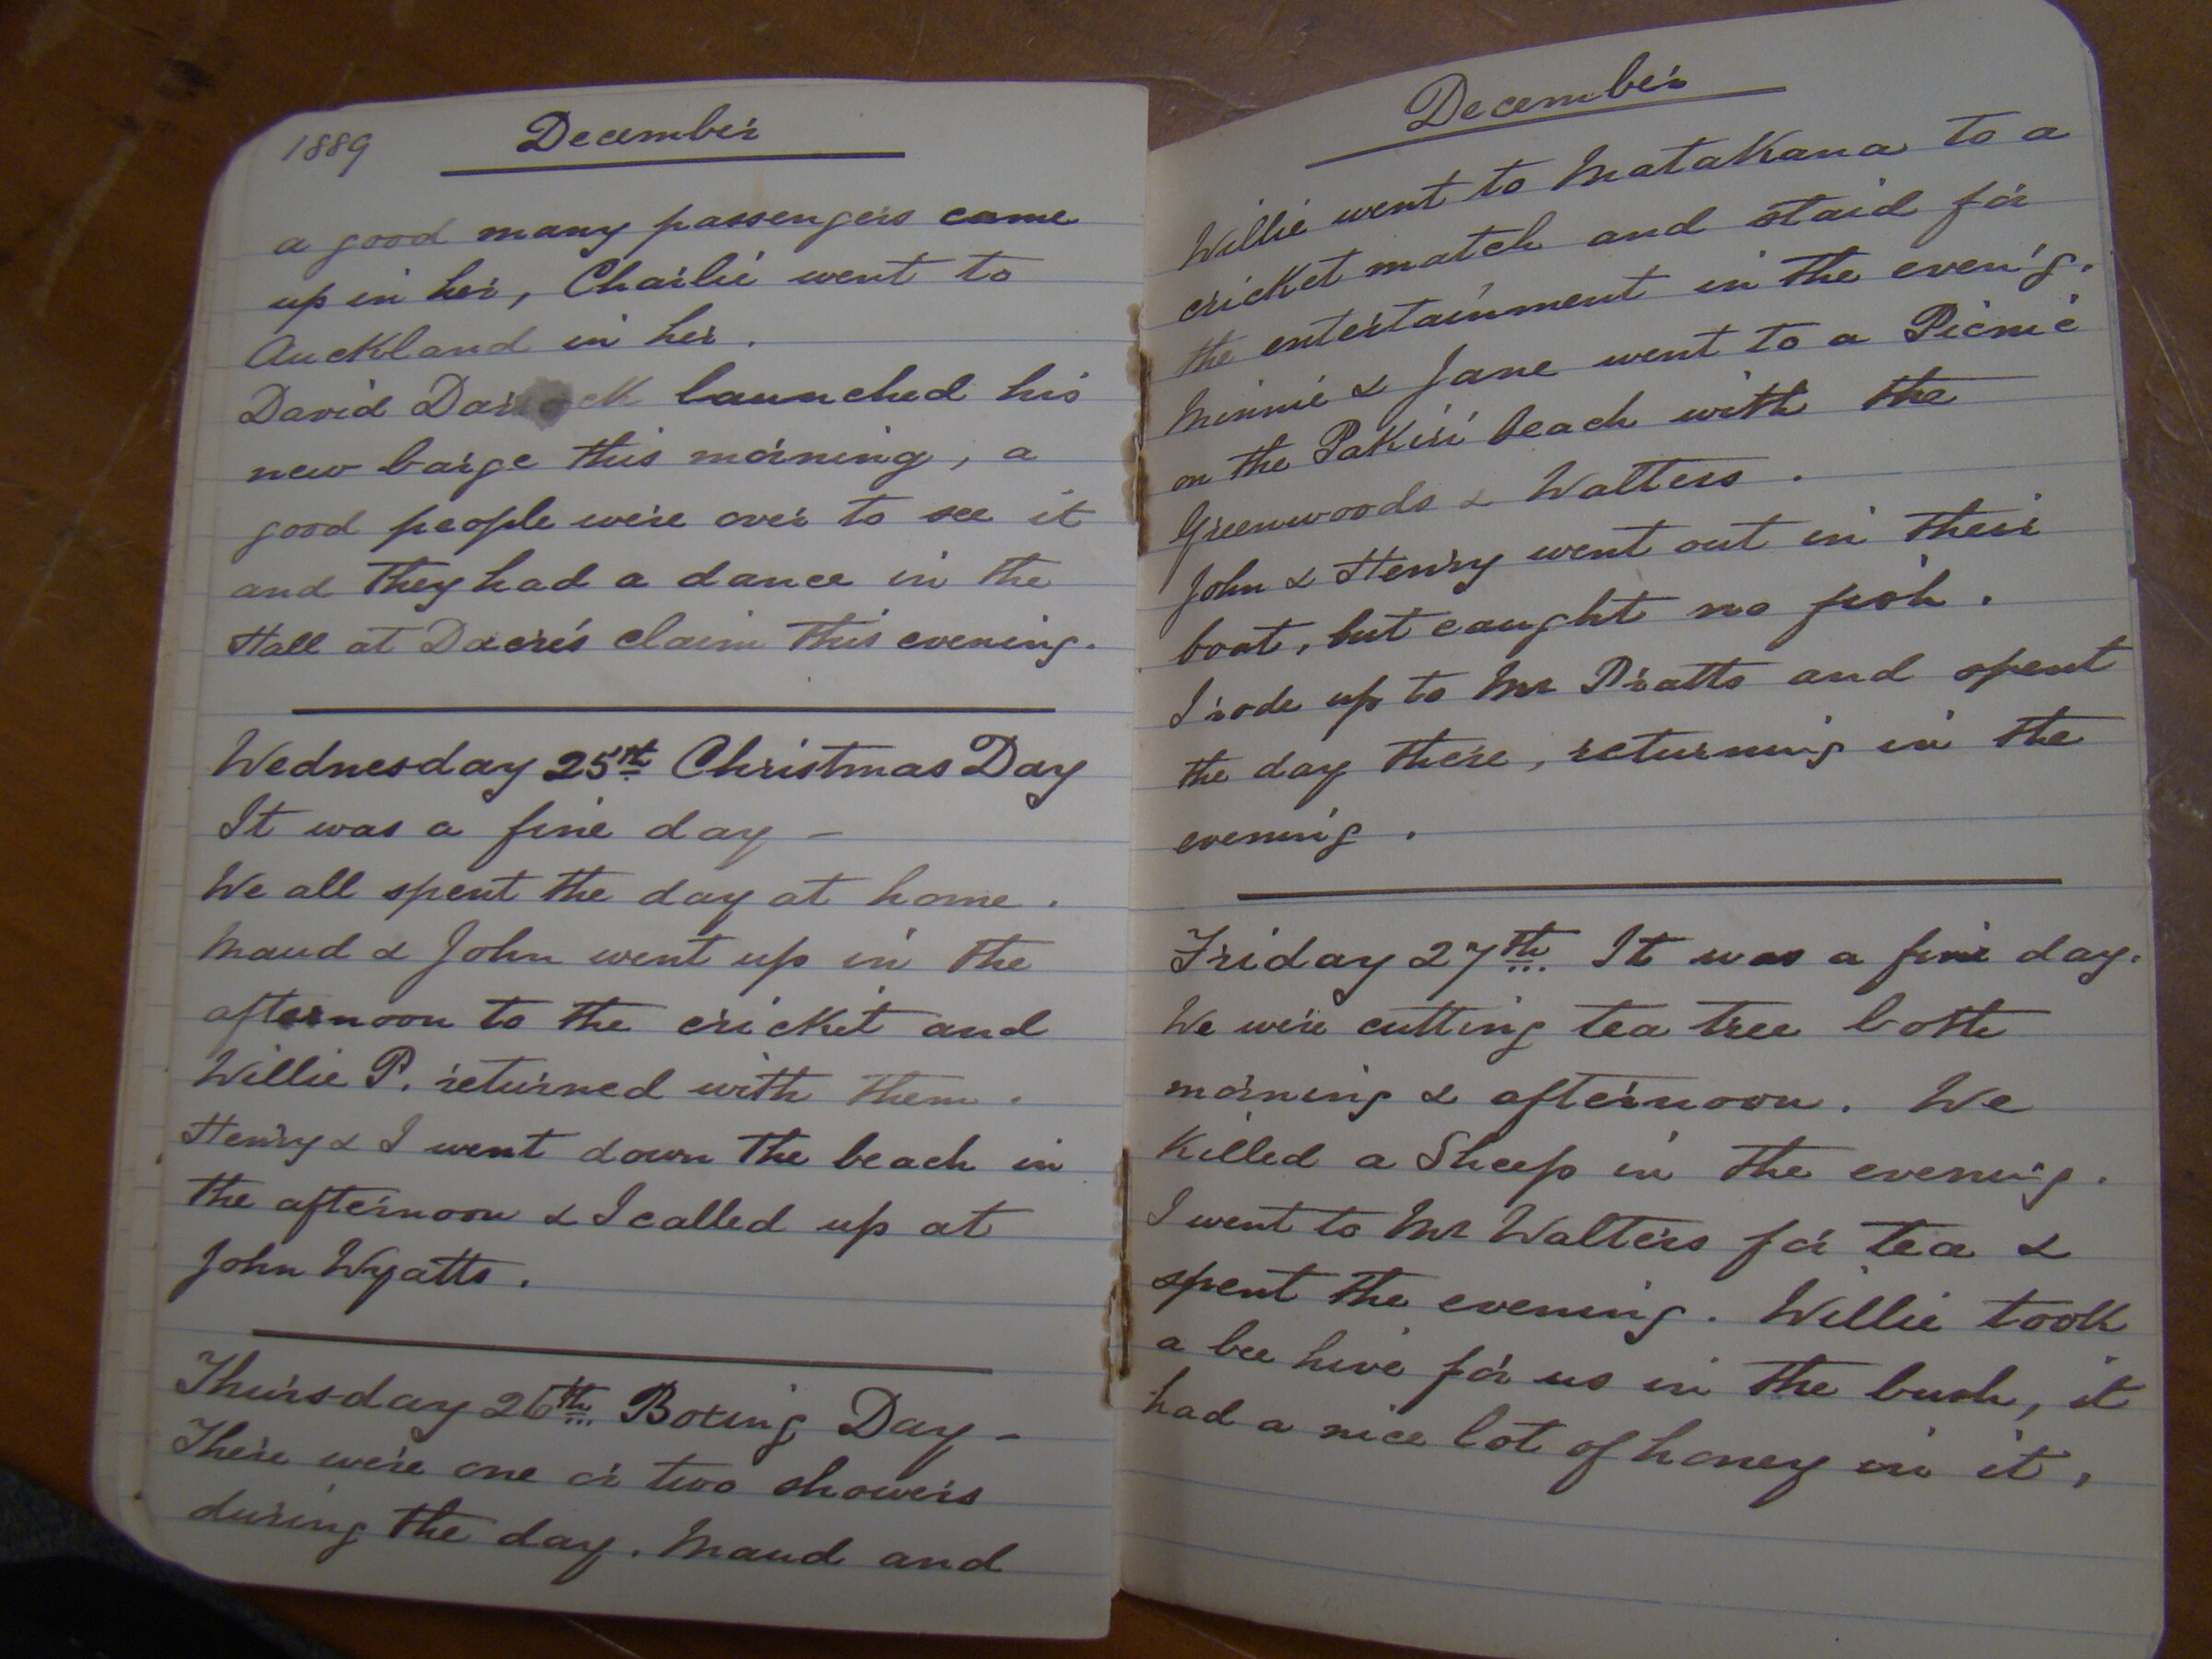 1889 December
a good many passengers came
up in her, Charlie went to
Auckland in her.
David launched his
new barge this morning, a
good people were over to see it
and they had a dance in the
Hall at Dacre's claim this evening.
Wednesday 25st Christmas Day
It was a fine day -
We all spent the day at home.
Maud & John went up in the
afternoon to the cricket and
Willie P. returned with them.
Henry & I went down the beach in
the afternoon & I called up at
John Wyatts.
Thursday 26th Boxing Day -
There were one or two showers
during the day. Maud and
December
Willie went to Matakana to a
cricket match and staid for
the entertainment in the even'g.
Minnie & Jane went to a Picnic
on the Pakiri beach with the
Greenwoods & Walters.
John & Henry went out in their
boat, but caught no fish.
I rode up to Mr Pratts and spent
the day there, returning in the
evening.
Friday 27th It was a fine day.
We were cutting tea tree both
morning & afternoon. We
Killed a Sheep in the evening.
I went to Mr Walters for tea &
spent the evening. Willie took
a bee hive for us in the bush, it
had a nice lot of honey in it,